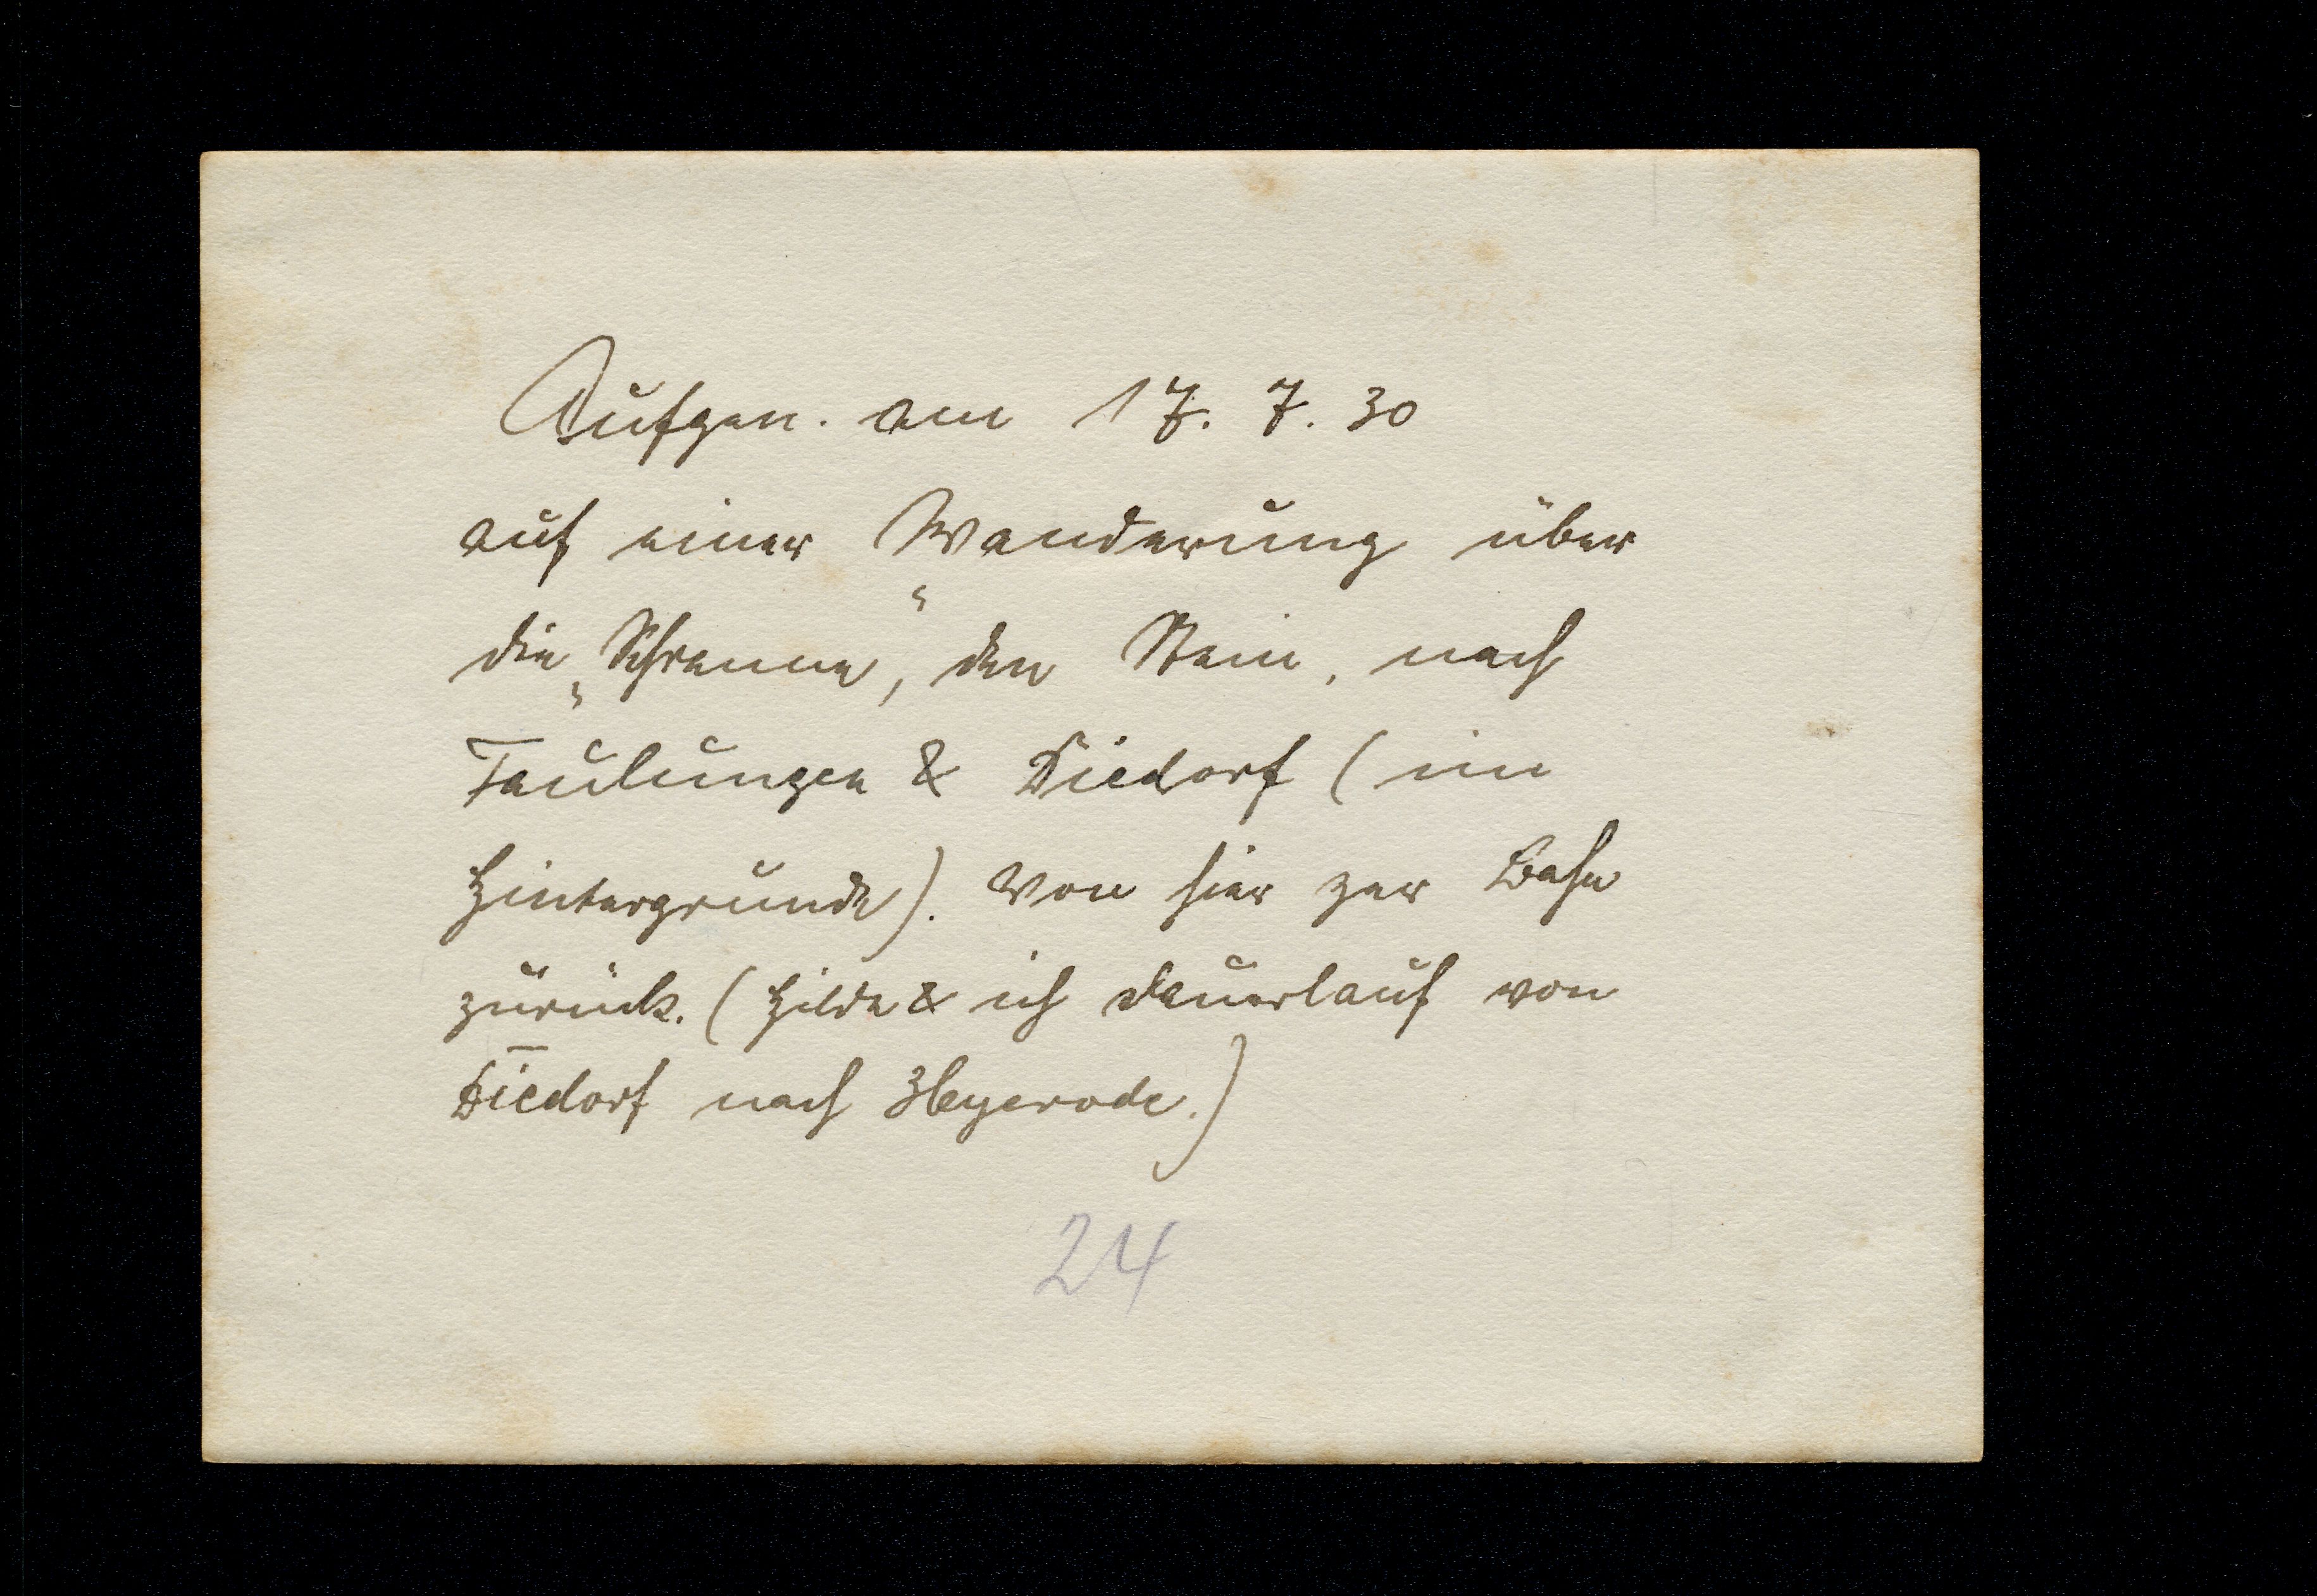 Aufgen. am 17. 7. 30
auf einer Wanderung über
die „Schranne“, den Stein, nach
Faulungen & Diedorf (im
Hintergrunde). Von hier zur Bahn
zurück. (Hilde & ich Dauerlauf von
Diedorf nach Heyerode.)
24